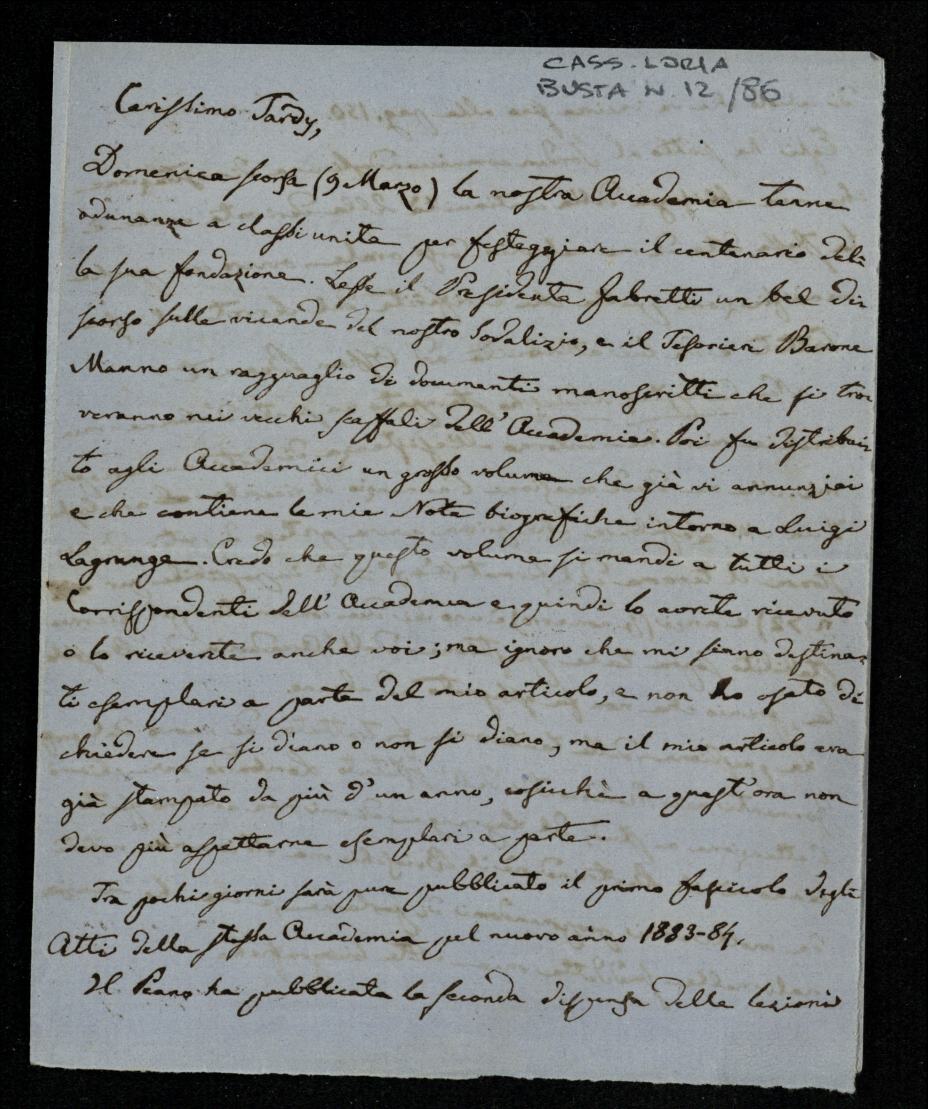 CASS. LORIA
BUSTA N. 12 /86
Carissimo Tardy,
Domenica scorsa (9 Marzo) la nostra Accademia tenne
adunanza a classi unite per festeggiare il centenario del-
la sua fondazione. Lesse il Presidente Fabretti un bel di-
scorso sulle vicende del nostro Sodalizio, e il Tesoriere Barone
Manno un ragguaglio di documenti manoscritti che si tro-
veranno nei vecchi scaffali dell'Accademia. Poi fu distribui-
to agli Accademici un grosso volume che già vi annunziai
e che contiene le mie Note biografiche intorno a Luigi
Lagrange. Credo che questo volume si mandi a tutti i
Corrispondenti dell'Accademia e quindi lo avrete ricevuto
o lo riceverete anche voi; ma ignoro che mi siano destina-
ti esemplari a parte del mio articolo, e non ho osato di
chiedere se si diano o non si diano, ma il mio articolo era
già stampato da più d'un anno, cosicchè a quest'ora non
devo più aspettarne esemplari a parte.
Tra pochi giorni sarà pure pubblicato il primo fascicolo degli
Atti della stessa Accademia pel nuovo anno 1883-84.
Il Peano ha pubblicata la seconda dispensa delle lezioni